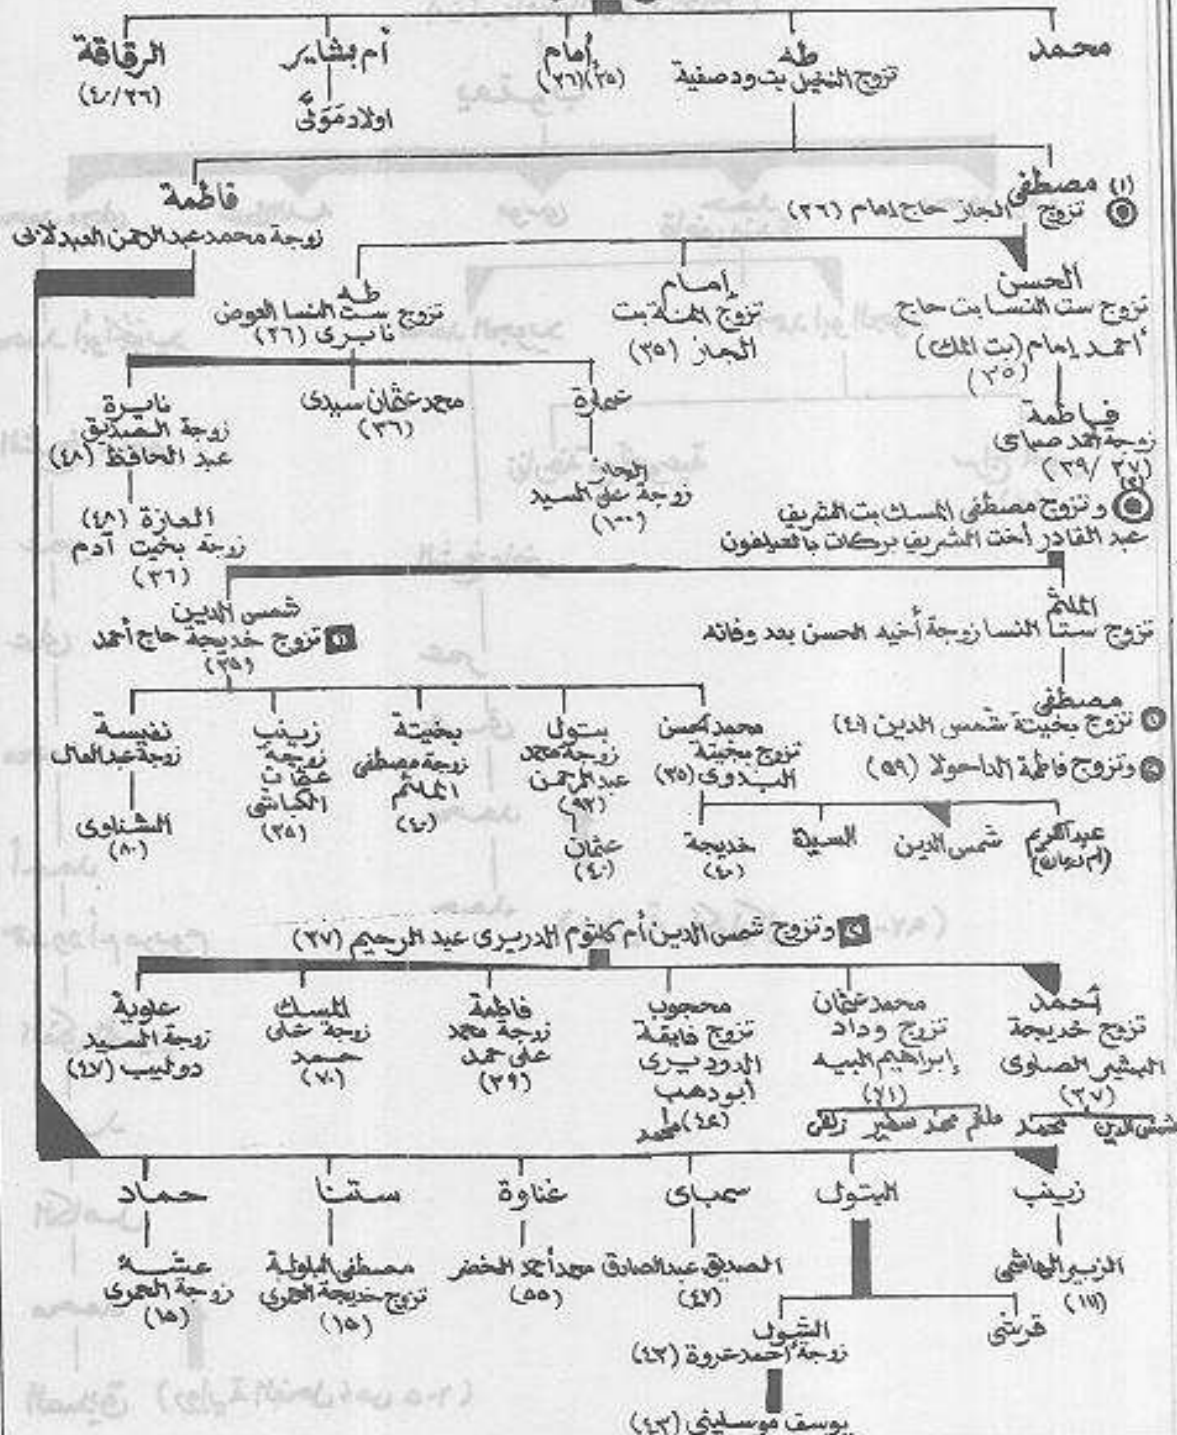 محمد
طه
تزوج النخيل بت ود صفية
إمام
(٣٥)(٣٦)
أم بشاير
اولاد مَوَلَّى
الرقاقة
(٤٠/٣٦)
(١) مصطفى
تزوج الجاز حاج إمام (٣٦)
فاطمة
زوجة محمد عبد الرحمن العبدلابى
الحسن
تزوج ست النسا بت حاج
أحمد إمام (بت الملك)
(٣٥)
إمام
تزوج المنة بت
الجاز (٣٥)
طه
تزوج ست النسا العوض
نابرى (٣٦)
فاطمة
زوجة أحمد صباحى
(٣٩/٣٧)
عمارة
الجاز
زوجة على السيد
(١٠٠)
محمد عثمان سيدى
(٣٦)
نايرة
زوجة الصديق
عبد الحافظ (٤٨)
العازة (٤٨)
زوجة بخيت آدم
(٣٦)
(٢) و تزوج مصطفى المسك بت الشريف
عبد القادر أخت الشريف بركات بالعيلفون
الملثم
تزوج ستنا النسا زوجة أخيه الحسن بعد وفاته
شمس الدين
١ تزوج خديجة حاج أحمد
(٣٥)
مصطفى
تزوج بخيتة شمس الدين (٤٠)
وتزوج فاطمة الداحولا (٥٩)
محمد الحسن
تزوج بخيتة
البدوى (٣٥)
بتول
زوجة محمد
عبد الرحمن
(٩٢)
عثمان
(٤٠)
بخيتة
زوجة مصطفى
الملثم
(٤٠)
زينب
زوجة
عثمان
الكباشى
(٣٥)
نفيسة
زوجة عبد العال
الشناوى
(٨٠)
عبد الكريم
شمس الدين
السيدة
خديجة
(٤٠)
٢ وتزوج شمس الدين أم كلثوم الدريرى عبد الرحيم (٣٧)
أحمد
تزوج خديجة
البشير الصاوى
(٣٧)
شمس الدين محمد
محمد عثمان
تزوج وداد
إبراهيم البيه
(٧١)
ملثم محمد سهير
محجوب
تزوج فايقة
الدرديرى
أبو دهب
(٤٤) محمد
فاطمة
زوجة محمد
على حمد
(٣٩)
المسك
زوجة على
حمد
(٧٠)
علوية
زوجة السيد
دوليب (٤٧)
زينب
الزبير الهاشمى
(١١١)
البتول
قرشى
الشول
زوجة أحمد عروة (٤٣)
يوسف موسلينى (٤٣)
سمباى
الصديق عبد الصادق
(٤٧)
غناوة
محمد أحمد الخضر
(٥٥)
ستنا
مصطفى البلولية
تزوج خديجة العمرى
(١٥)
حماد
عشة
زوجة العمرى
(١٥)